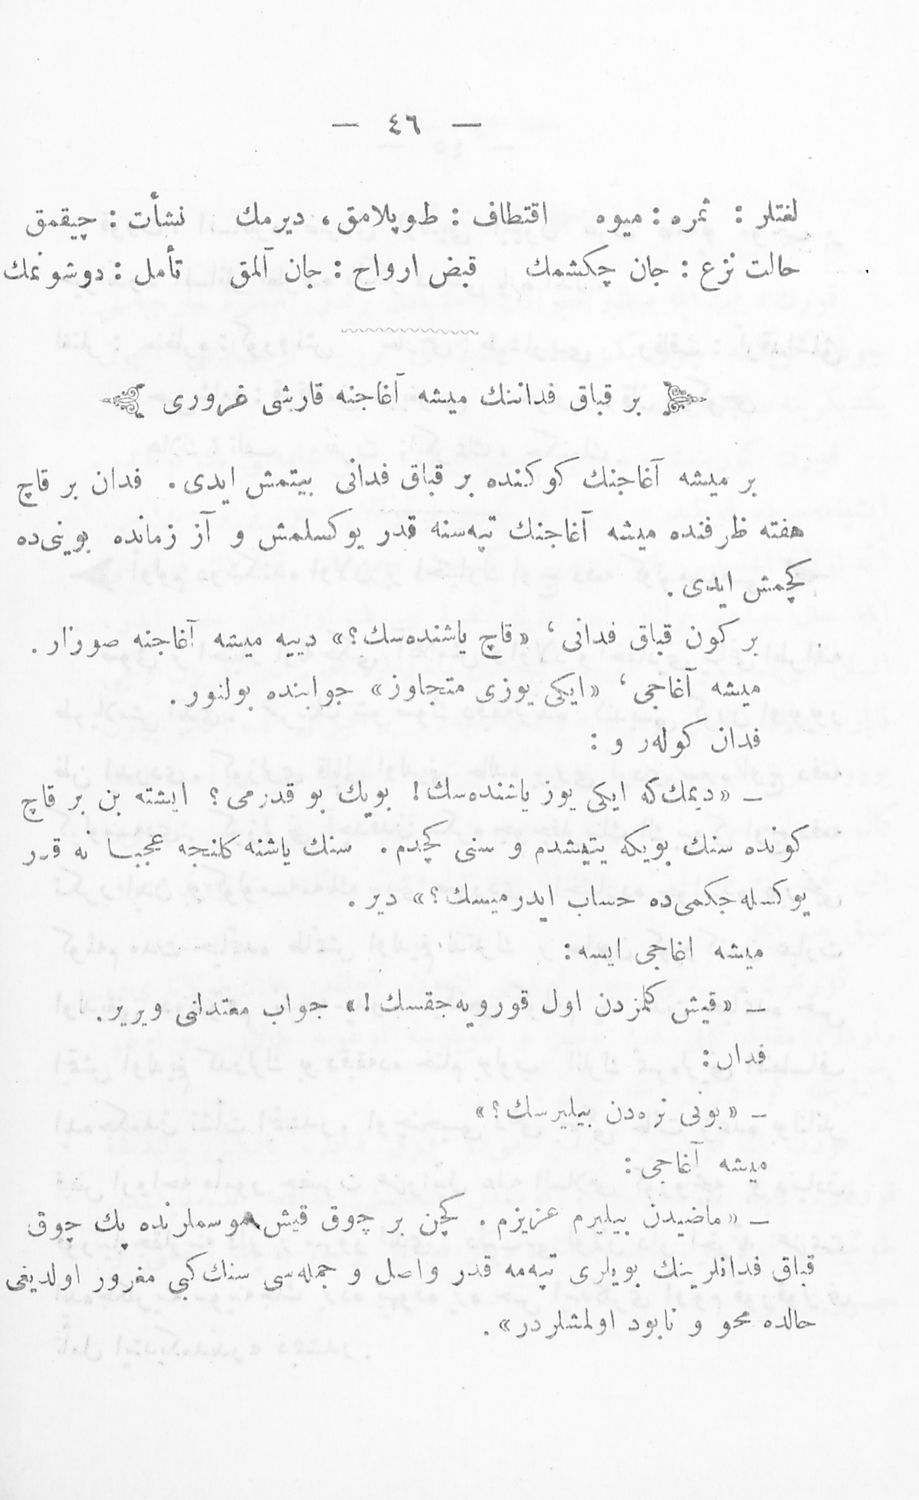 — ٤٦ —
لغتلر : ثمره : میوه اقتطاف : طوپلامق ، دیرمك نشأت : چیقمق
حالت نزع : جان چكشمك قبض ارواح : جان آلمق تأمل : دوشونمك
بر قباق فداننك میشه آغاجنه قارشی غروری
بر میشه آغاجنك كوكنده بر قباق فدانی بیتمش ایدی . فدان بر قاچ
هفته ظرفنده میشه آغاجنك تپه‌سنه قدر یوكسلمش و آز زمانده بوینی‌ده
كچمش ایدی .
بر كون قباق فدانی ، «قاچ یاشنده‌سك ؟» دییه میشه آغاجنه صورار .
میشه آغاجی ، «ایكی یوزی متجاوز» جوابنده بولنور .
فدان كولەر و :
— «دیمك‌كه ایكی یوز یاشنده‌سك ! بویك بو قدرمی ؟ ایشته بن بر قاچ
كونده سنك بویكه یتیشدم و سنی كچدم . سنك یاشنه كلنجه عجبا نه قدر
یوكسله‌جكمی‌ده حساب ایدرمیسك ؟» دیر .
میشه اغاجی ایسه :
— «قیش كلمزدن اول قورویه‌جقسك !» جواب معتدلنی ویریر .
فدان :
— «بونی نره‌دن بیلیرسك ؟»
میشه آغاجی :
— «ماضیدن بیلیرم عزیزم . كچن بر چوق قیش موسملرنده پك چوق
قباق فدانلرینك بویلری تپه‌مه قدر واصل و جمله‌سی سنك‌كبی مغرور اولدیغی
حالده محو و نابود اولمشلردر» .